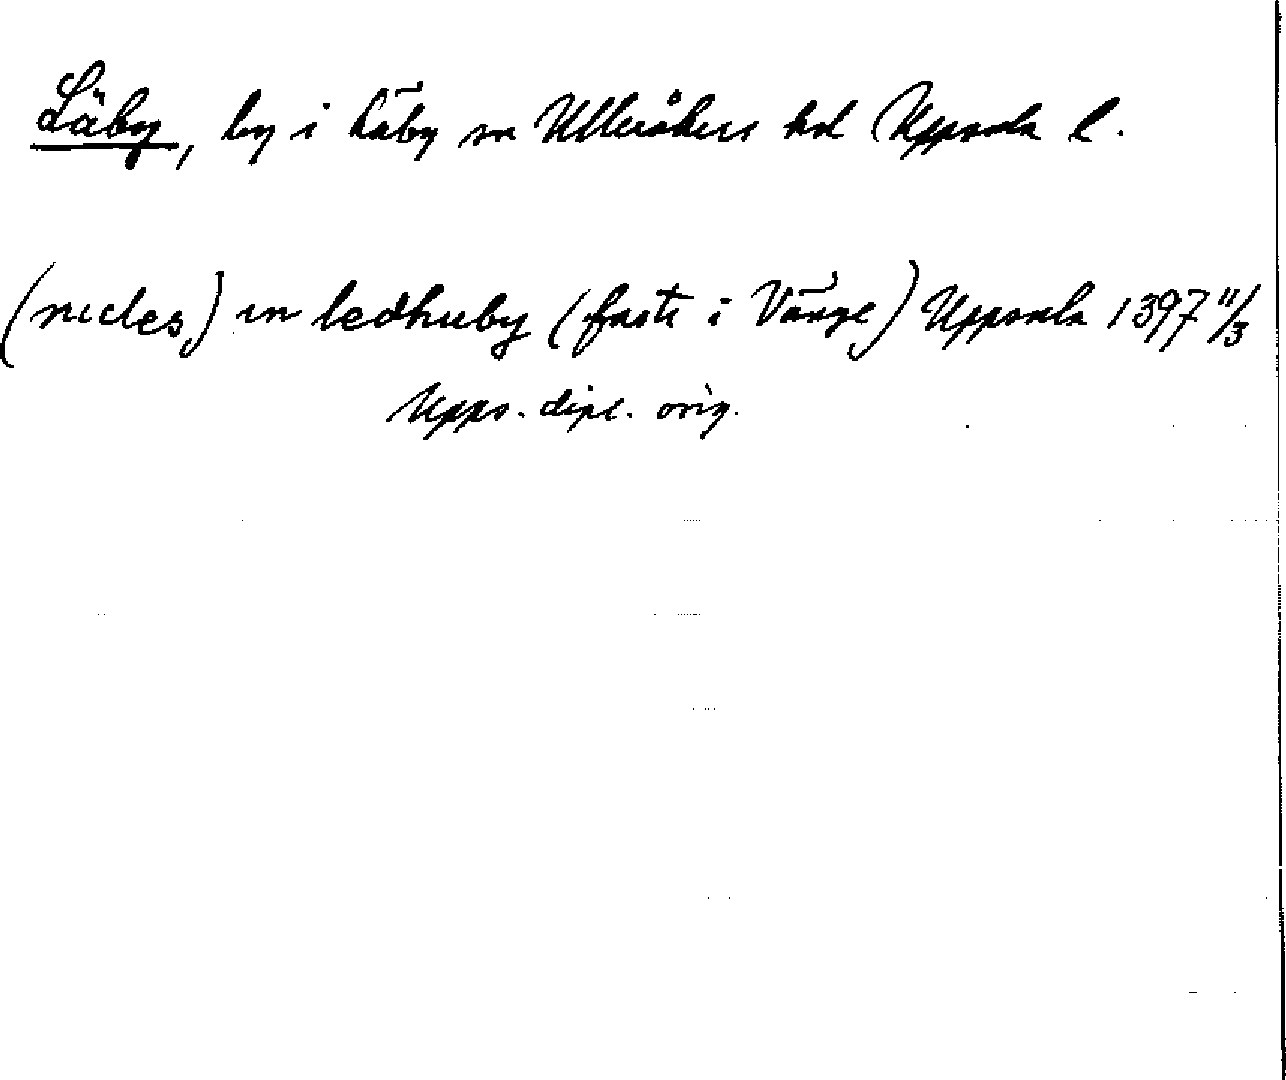 Läby, by i Läby sn Ulleråkers hd Uppsala l.
in ledhuby (faste i Vänge) Uppsala 1397 11/3
Upps. dipl. orig.